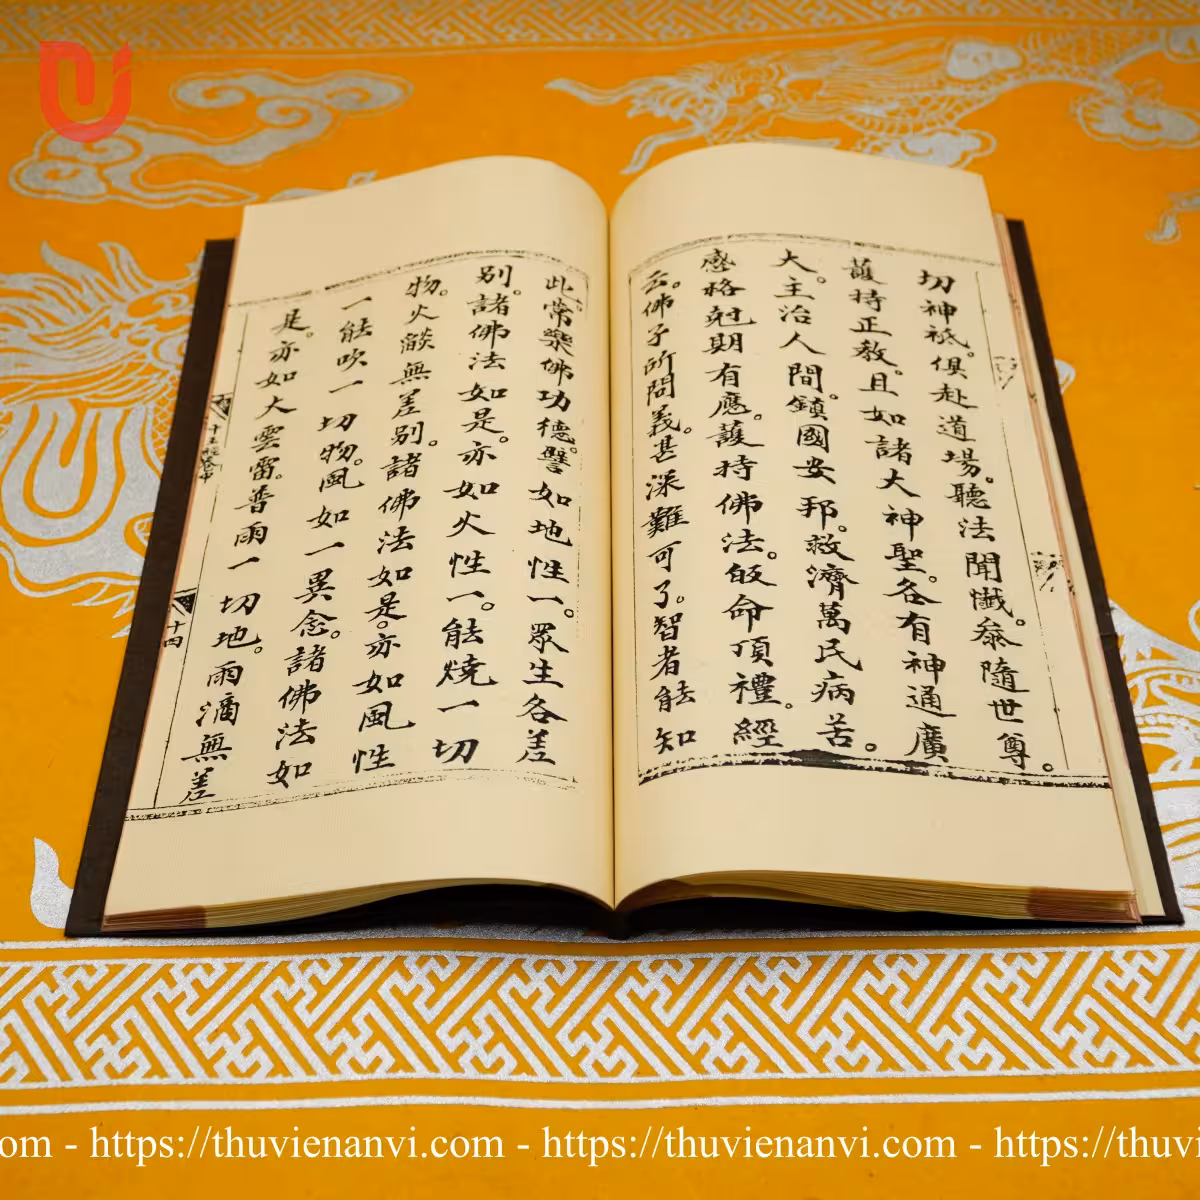 切神祇。俱赴道場。聽法聞懺。叅隨世尊。
護持正教。且如諸大神聖。各有神通廣
大。主治人間。鎮國安邦。救濟萬民病苦。
感格尅期有應。護持佛法。皈命頂禮。經
云。佛子所問義。甚深難可了。智者能知
此。常樂佛功德。譬如地性一。眾生各差
別。諸佛法如是。亦如火性一。能燒一切
物。火燄無差別。諸佛法如是。亦如風性
一。能吹一切物。風如一異念。諸佛法如
是。亦如大雲雷。普雨一切地。雨滴無差
十四
om - https://thuvienanvi.com - https://thuvienanvi.com - https://thuvi